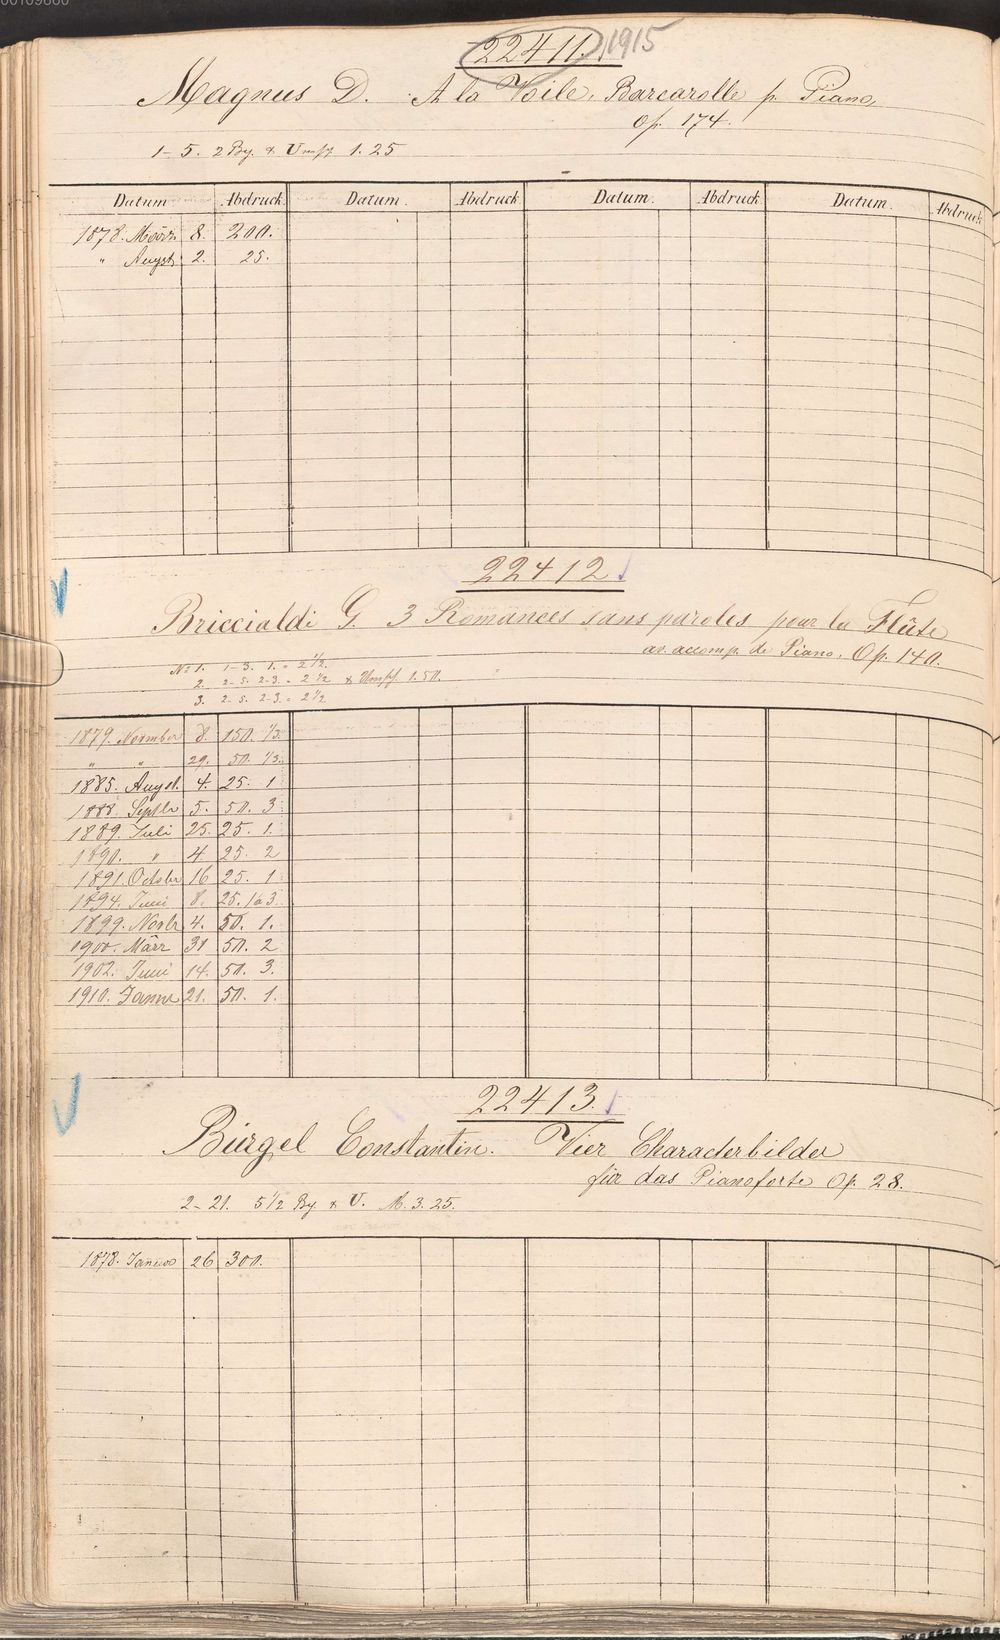 22411. 1915
Magnus D. A la Voile, Barcarolle p. Piano,
Op. 174.
1-5. 2 Bg. & Umschl 1. 25
Datum Abdruck Datum. Abdruck Datum. Abdruck Datum. Abdruck
1878. März 8. 200.
" Augst 2. 25.
22412
Briccialdi G. 3 Romances sans paroles pour la Flûte
av. accomp. de Piano, Op. 140.
No 1. 1-3. 1. = 2 1/2.
2. 2-5. 2-3. = 2 1/2 & Umschl. 1.50.
3. 2-5. 2-3. = 2 1/2
1879. Novmber 8. 150. 1/3.
" " 29. 50. 1/3.
1885. Augst. 4. 25. 1
1888. Septbr 5. 50. 3.
1889. Juli 25. 25. 1.
1890. " 4 25. 2
1891. Octobr 16 25. 1
1894. Juni 8. 25. 1à3.
1899. Novbr 4. 50. 1.
1900. März 31 50. 2
1902. Juni 14. 50. 3.
1910. Januar 21. 50. 1.
22413.
Bürgel Constantin. Vier Characterbilder
für das Pianoforte Op. 28.
2-21. 5 1/2 Bg. & U. M. 3. 25.
1878. Januar 26 300.